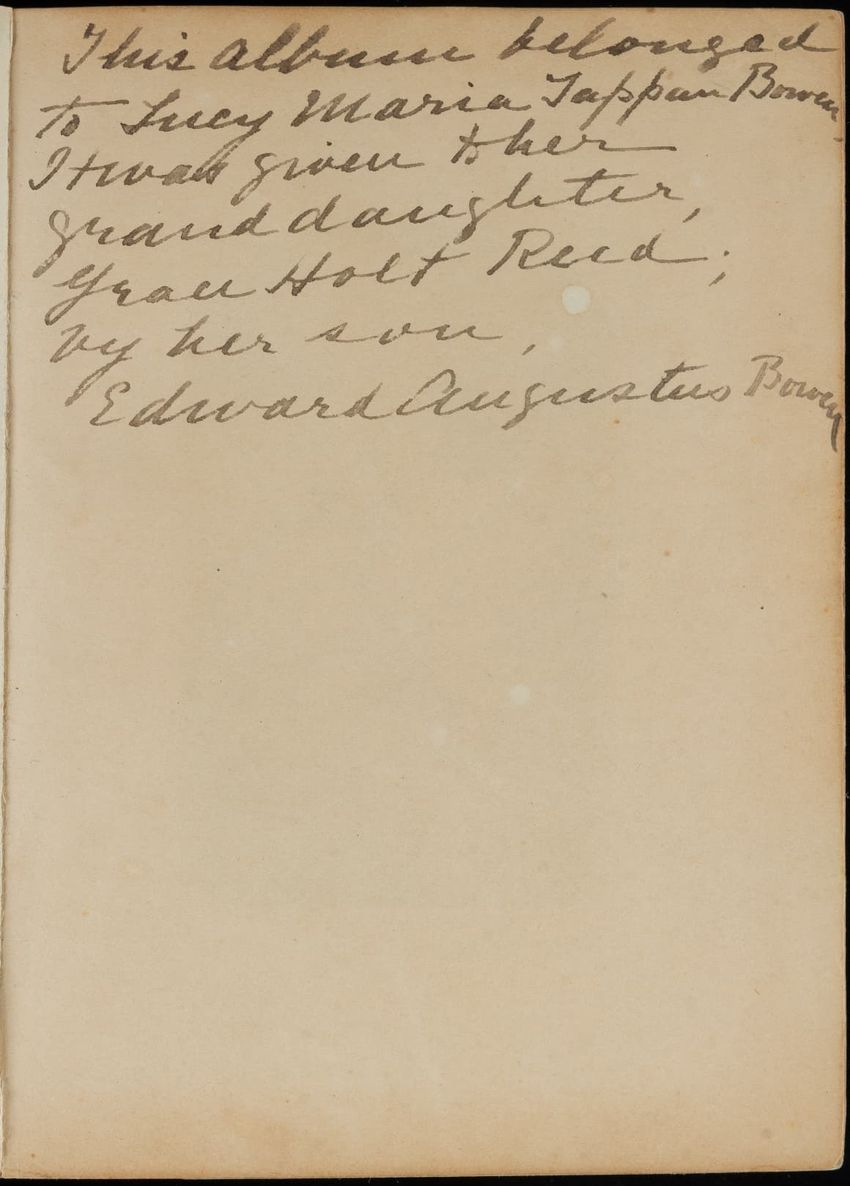 This album belonged
to Lucy Maria Tappan Bowen.
It was given to her
granddaughter,
Grace Holt Reed;
by her son,
Edward Augustus Bowen